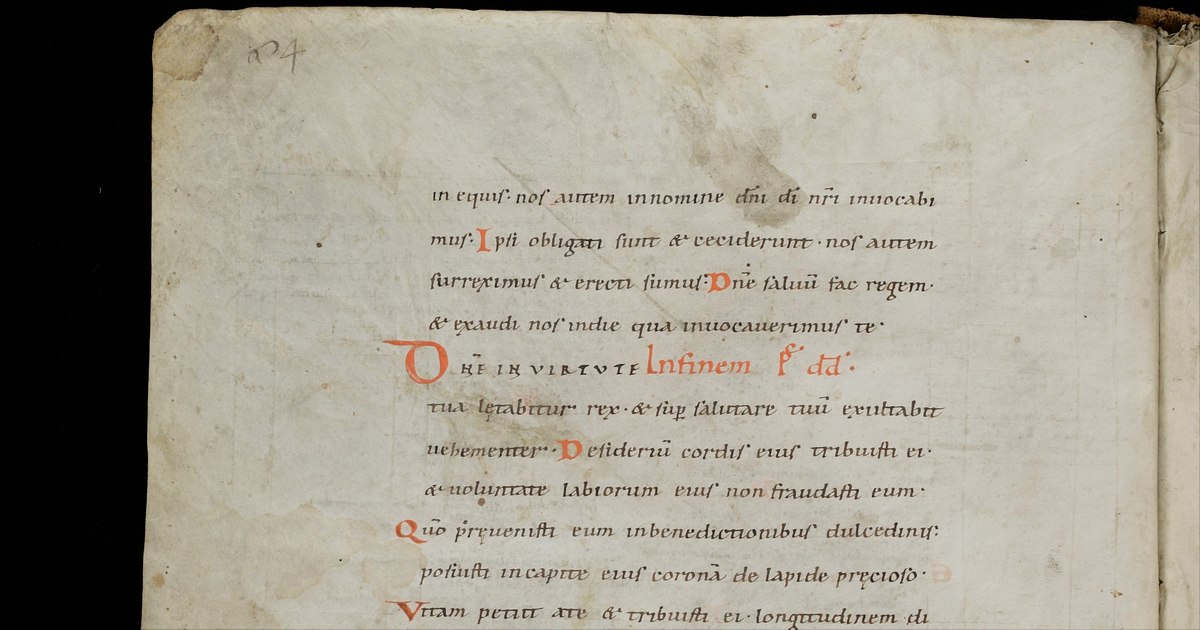 in equis· nos autem innomine dn̄i dī nr̄i inuocabi
mus· Ipsi obligati sunt & ceciderunt · nos autem
surreximus & erecti sumus· Dn̄e saluū fac regem·
& exaudi nos indie qua inuocauerimus te·
DN̄E IN VIRTVTE Infinem ps̄ dd̄·
tua lętabitur rex · & sup̱ salutare tuū exultabit
uehementer· Desideriū cordis eius tribuisti ei·
& uoluntate labiorum eius non fraudasti eum·
Quō pręuenisti eum inbenedictionibus dulcedinis:
posuisti incapite eius coronā de lapide pręcioso·
Vitam petiit ate & tribuisti ei · longitudinem di